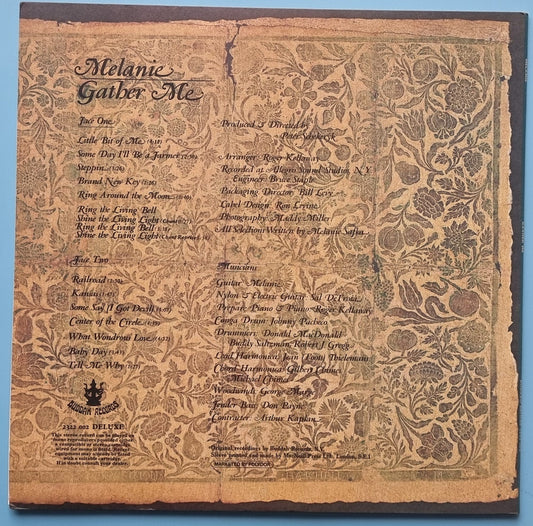 Melanie
Gather Me
Face One
Little Bit of Me
Some Day I'll Be a Farmer
Steppin'
Brand New Key
Ring Around the Moon
Ring the Living Bell
Shine the Living Light
Ring the Living Bell
Shine the Living Light
Face Two
Railroad
Kansas
Some Say (I Got Devil)
Center of the Circle
What Wondrous Love
Baby Day
Tell Me Why
BUDDAH RECORDS
2322 002 DELUXE
This stereo record can be played on
mono reproducers provided
a compatible or stereo
wired for mono is fitted. Your
equipment may already be fitted
with a suitable cartridge.
If in doubt consult your dealer.
Produced & Directed by
Peter Schekeryk
Arranger Roger Kellaway
Recorded at Allegro Sound Studios, N.Y.
Engineer Bruce Staple
Packaging Director Bill Levy
Label Design Ron Levine
Photography Maddy Miller
All Selections Written by Melanie Safka
Musicians
Guitar Melanie
Nylon & Electric Guitar Sal DiTroia
Prepare Piano & Piano Roger Kellaway
Conga Drum Johnny Pacheco
Drummers Donald MacDonald
Buddy Saltzman, Robert J Gregg
Lead Harmonica Jean (Toots) Thielemans
Chord Harmonica Gilbert Chimes
Michael Chimes
Woodwinds George Marge
Fender Bass Don Payne
Contractor Arthur Kaplan
Original recordings by Buddah Records, N.Y.
Sleeve printed and made by MacNeill Press Ltd. London, S.E.1
MARKETED BY POLYDOR